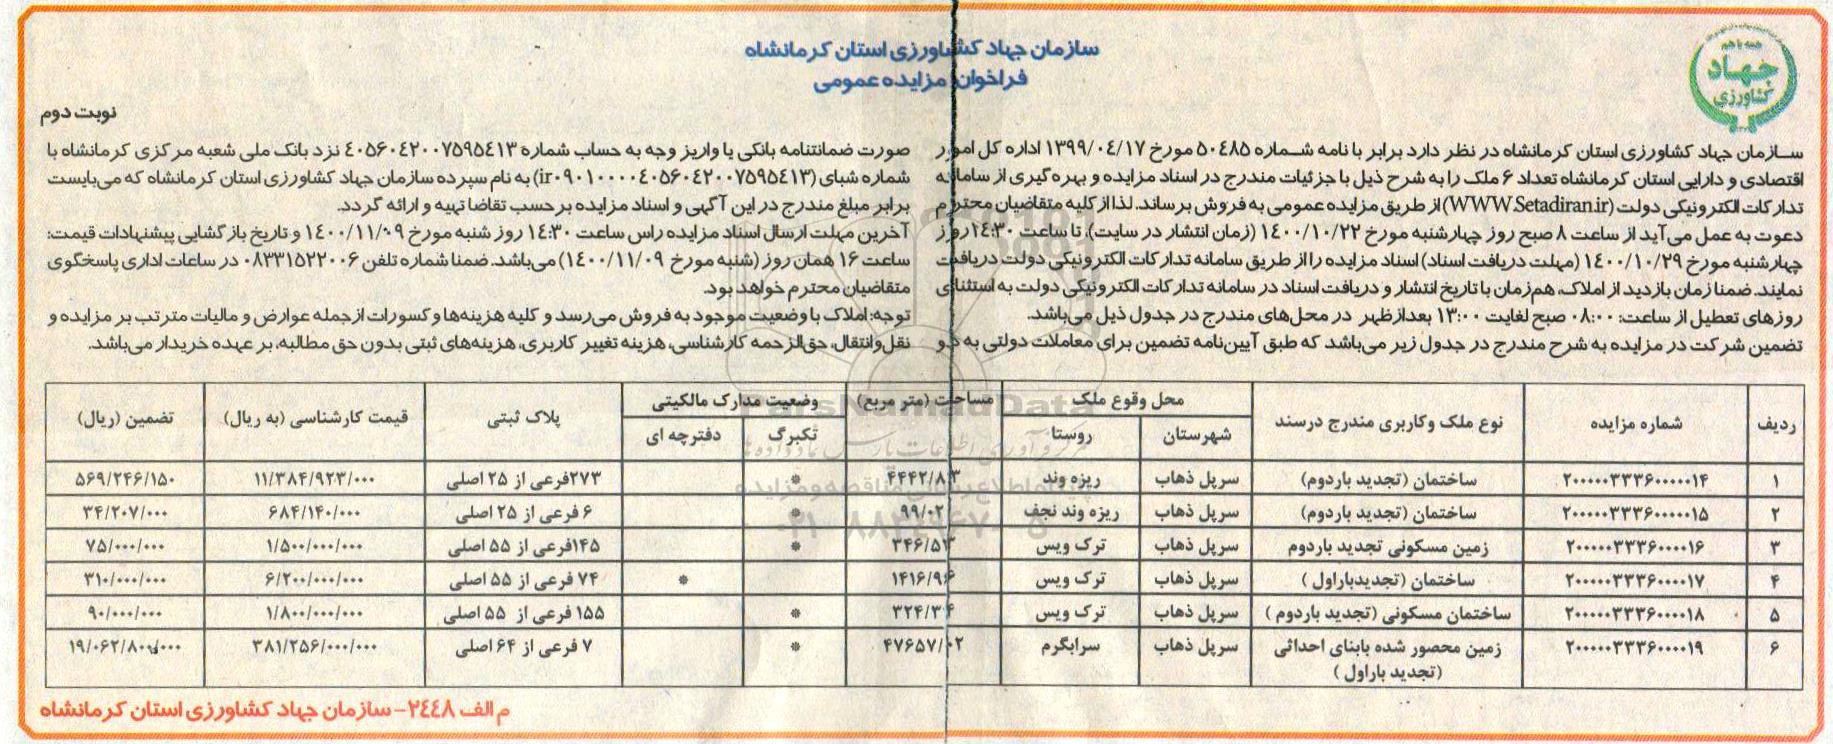 همه با هم
جهاد
کشاورزی
سازمان جهاد کشاورزی استان کرمانشاه
فراخوان مزایده عمومی
نوبت دوم
سازمان جهاد کشاورزی استان کرمانشاه در نظر دارد برابر با نامه شماره ۵۰۴۸۵ مورخ ۱۳۹۹/۰۴/۱۷ اداره کل امور
اقتصادی و دارایی استان کرمانشاه تعداد ۶ ملک را به شرح ذیل با جزئیات مندرج در اسناد مزایده و بهره گیری از سامانه
تدارکات الکترونیکی دولت (WWW.Setadiran.ir) از طریق مزایده عمومی به فروش برساند. لذا از کلیه متقاضیان محترم
دعوت به عمل می‌آید از ساعت ۸ صبح روز چهارشنبه مورخ ۱۴۰۰/۱۰/۲۲ (زمان انتشار در سایت). تا ساعت ۱۴:۳۰ روز
چهارشنبه مورخ ۱۴۰۰/۱۰/۲۹ (مهلت دریافت اسناد) اسناد مزایده را از طریق سامانه تدارکات الکترونیکی دولت دریافت
نمایند. ضمنا زمان بازدید از املاک، هم‌زمان با تاریخ انتشار و دریافت اسناد در سامانه تدارکات الکترونیکی دولت به استثنای
روزهای تعطیل از ساعت: ۰۸:۰۰ صبح لغایت ۱۳:۰۰ بعدازظهر در محل‌های مندرج در جدول ذیل می‌باشد.
تضمین شرکت در مزایده به شرح مندرج در جدول زیر می‌باشد که طبق آیین‌نامه تضمین برای معاملات دولتی به دو
صورت ضمانتنامه بانکی یا واریز وجه به حساب شماره ۴۰۵۶۰۴۲۰۰۷۵۹۵۴۱۳ نزد بانک ملی شعبه مرکزی کرمانشاه با
شماره شبای (ir۰۹۰۱۰۰۰۰۴۰۵۶۰۴۲۰۰۷۵۹۵۴۱۳) به نام سپرده سازمان جهاد کشاورزی استان کرمانشاه که می‌بایست
برابر مبلغ مندرج در این آگهی و اسناد مزایده بر حسب تقاضا تهیه و ارائه گردد.
آخرین مهلت ارسال اسناد مزایده راس ساعت ۱۴:۳۰ روز شنبه مورخ ۱۴۰۰/۱۱/۰۹ و تاریخ بازگشایی پیشنهادات قیمت:
ساعت ۱۶ همان روز (شنبه مورخ ۱۴۰۰/۱۱/۰۹) می‌باشد. ضمنا شماره تلفن ۰۸۳۳۱۵۲۲۰۰۶ در ساعات اداری پاسخگوی
متقاضیان محترم خواهد بود.
توجه: املاک با وضعیت موجود به فروش می‌رسد و کلیه هزینه‌ها و کسورات از جمله عوارض و مالیات مترتب بر مزایده و
نقل‌وانتقال، حق‌الزحمه کارشناسی، هزینه تغییر کاربری، هزینه‌های ثبتی بدون حق مطالبه، بر عهده خریدار می‌باشد.
ردیف شماره مزایده نوع ملک وکاربری مندرج درسند محل وقوع ملک مساحت (متر مربع) وضعیت مدارک مالکیتی پلاک ثبتی قیمت کارشناسی (به ریال) تضمین (ریال)
شهرستان روستا تکبرگ دفترچه ای
۱ ۲۰۰۰۰۰۳۳۳۶۰۰۰۰۱۴ ساختمان (تجدید باردوم) سرپل ذهاب ریزه وند ۴۴۴۲/۸۳ * ۲۷۳فرعی از ۲۵ اصلی ۱۱/۳۸۴/۹۲۳/۰۰۰ ۵۶۹/۲۴۶/۱۵۰
۲ ۲۰۰۰۰۰۳۳۳۶۰۰۰۰۱۵ ساختمان (تجدید باردوم) سرپل ذهاب ریزه وند نجف ۹۹/۰۲ * ۶ فرعی از ۲۵ اصلی ۶۸۴/۱۴۰/۰۰۰ ۳۴/۲۰۷/۰۰۰
۳ ۲۰۰۰۰۰۳۳۳۶۰۰۰۰۱۶ زمین مسکونی تجدید باردوم سرپل ذهاب ترک ویس ۳۴۶/۵۳ * ۱۴۵فرعی از ۵۵ اصلی ۱/۵۰۰/۰۰۰/۰۰۰ ۷۵/۰۰۰/۰۰۰
۴ ۲۰۰۰۰۰۳۳۳۶۰۰۰۰۱۷ ساختمان (تجدیدباراول ) سرپل ذهاب ترک ویس ۱۴۱۶/۹۶ * ۷۴ فرعی از ۵۵ اصلی ۶/۲۰۰/۰۰۰/۰۰۰ ۳۱۰/۰۰۰/۰۰۰
۵ ۲۰۰۰۰۰۳۳۳۶۰۰۰۰۱۸ ساختمان مسکونی (تجدید باردوم ) سرپل ذهاب ترک ویس ۳۲۴/۳۴ * ۱۵۵ فرعی از ۵۵ اصلی ۱/۸۰۰/۰۰۰/۰۰۰ ۹۰/۰۰۰/۰۰۰
۶ ۲۰۰۰۰۰۳۳۳۶۰۰۰۰۱۹ زمین محصور شده بابنای احداثی سرپل ذهاب سرابگرم ۴۷۶۵۷/۰۲ * ۷ فرعی از ۶۴ اصلی ۳۸۱/۲۵۶/۰۰۰/۰۰۰ ۱۹/۰۶۲/۸۰۰/۰۰۰
(تجدید باراول )
م الف ۲۴۴۸- سازمان جهاد کشاورزی استان کرمانشاه
ParsNamadData